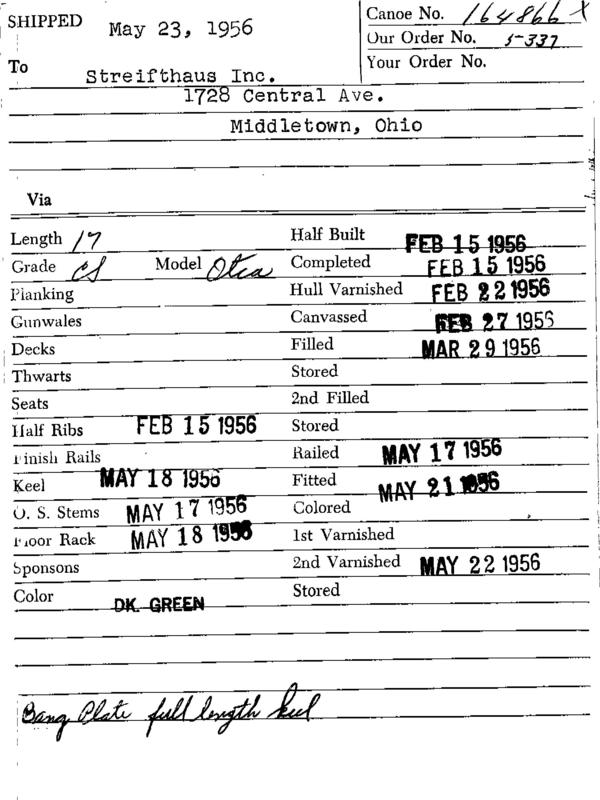 SHIPPED May 23, 1956
Canoe No. 164866 X
Our Order No. 5-337
Your Order No.
To Streifthaus Inc.
1728 Central Ave.
Middletown, Ohio
Via
Length 17
Grade CS Model Otca
Planking
Gunwales
Decks
Thwarts
Seats
Half Ribs FEB 15 1956
Finish Rails
Keel MAY 18 1956
O. S. Stems MAY 17 1956
Floor Rack MAY 18 1956
Sponsons
Color DK. GREEN
Half Built FEB 15 1956
Completed FEB 15 1956
Hull Varnished FEB 22 1956
Canvassed FEB 27 1956
Filled MAR 29 1956
Stored
2nd Filled
Stored
Railed MAY 17 1956
Fitted MAY 21 1956
Colored
1st Varnished
2nd Varnished MAY 22 1956
Stored
Bang Plate full length keel